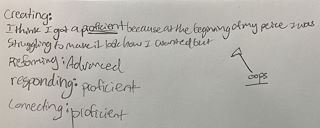 Creating:
I think I got a proficient because at the beginning of my peice I was
struggling to make it look how I wanted but
Preforming: Advanced
oops
responding: proficient
Connecting: proficient